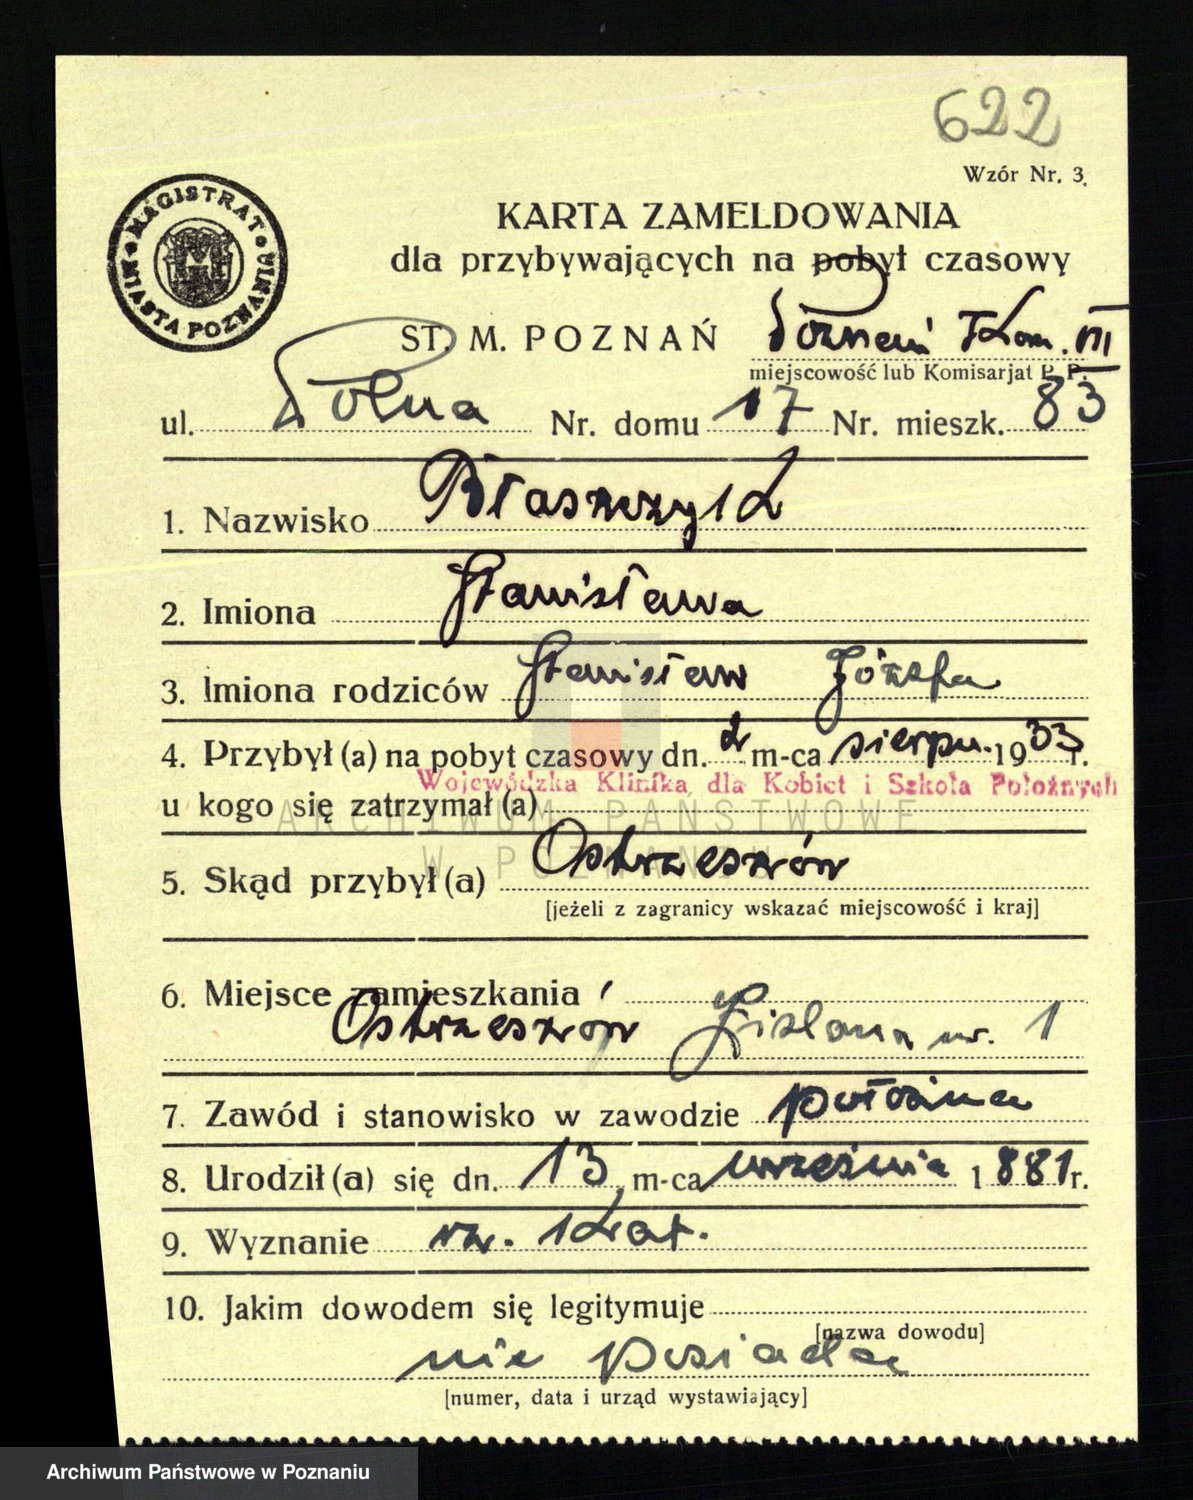 622
Wzór Nr. 3.
KARTA ZAMELDOWANIA
dla przybywających na pobyt czasowy
MAGISTRAT MIASTA POZNANIA
ST. M. POZNAŃ Poznań Kom. VII
miejscowość lub Komisarjat P. P.
ul. Polna Nr. domu 17 Nr. mieszk. 83
1. Nazwisko Błaszczyk
2. Imiona Stanisława
3. Imiona rodziców Stanisław Józefa
4. Przybył (a) na pobyt czasowy dn. 2 m-ca sierpn. 1933 r.
Wojewódzka Klinika dla Kobiet i Szkoła Położnych
u kogo się zatrzymał (a)
ARCHIWUM PAŃSTWOWE
W POZNANIU
5. Skąd przybył (a) Ostrzeszów
[jeżeli z zagranicy wskazać miejscowość i kraj]
6. Miejsce zamieszkania
Ostrzeszów nr. 1
7. Zawód i stanowisko w zawodzie położna
8. Urodził (a) się dn. 13 m-ca września 1881 r.
9. Wyznanie rz. kat.
10. Jakim dowodem się legitymuje
[nazwa dowodu]
nie posiada
[numer, data i urząd wystawiający]
Archiwum Państwowe w Poznaniu